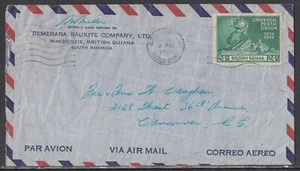 DEMERARA BAUXITE COMPANY, LTD.
MACKENZIE, BRITISH GUIANA
SOUTH AMERICA
UNIVERSAL
POSTAL
UNION
1874
1949
24¢ BRITISH GUIANA 24¢
Mr & Mrs H. Vaughan,
2128 Street 36th Avenue
Vancouver, B.C.
PAR AVION VIA AIR MAIL CORREO AEREO